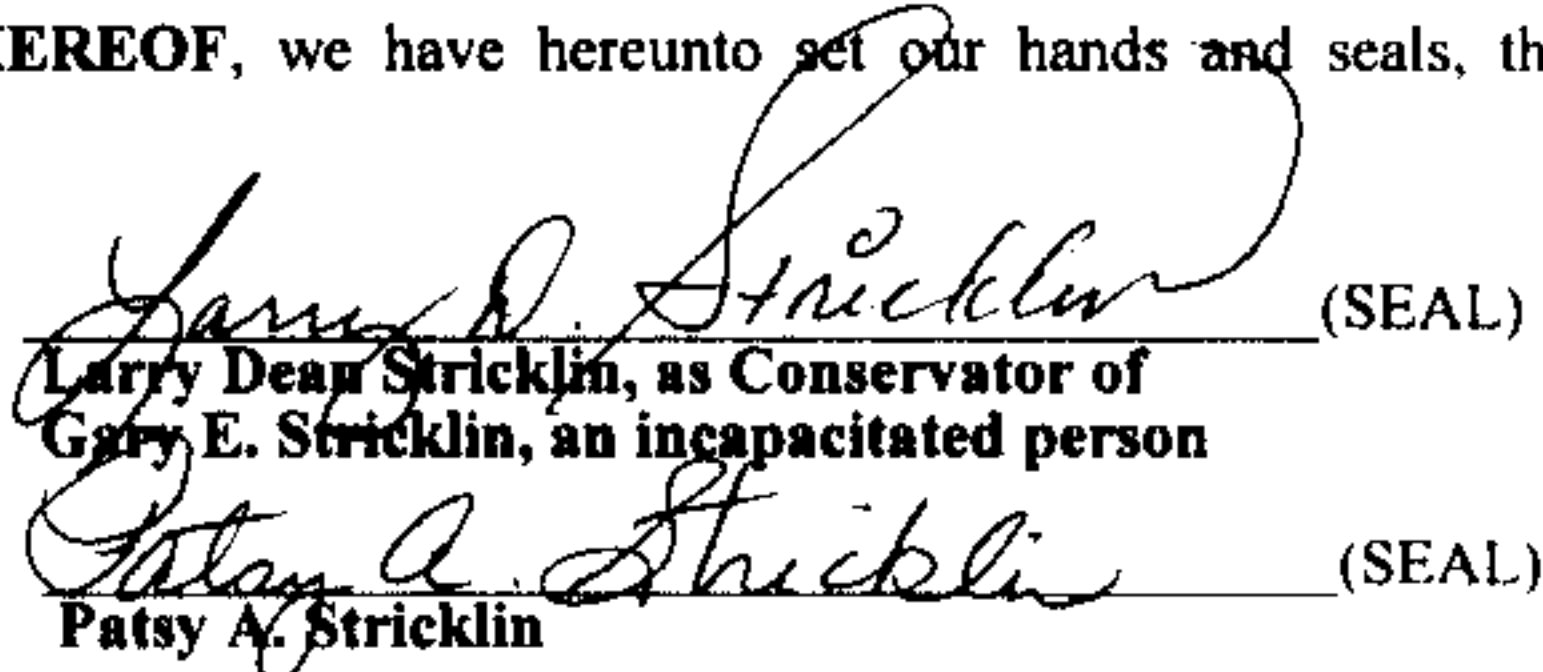 HEREOF, we have hereunto set our hands and seals, th
Larry D. Stricklin (SEAL)
Larry Dean Stricklin, as Conservator of
Gary E. Stricklin, an incapacitated person
Patsy A. Stricklin (SEAL)
Patsy A. Stricklin